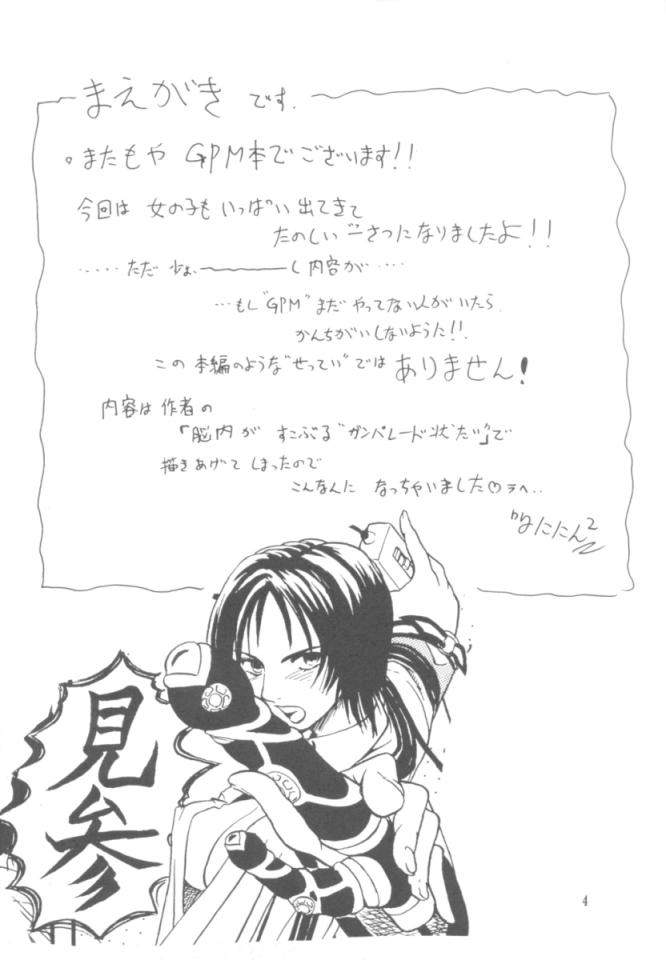 まえがき です.
。またもや GPM本でございます!!
今回は 女の子も いっぱい 出てきて
たのしい 一さつになりましたよ!!
‥‥‥ただ 少ぉ———し 内容が‥‥‥
‥もし "GPM" まだ やってない人がいたら
かんちがいしないように!!
この 本編のような"せってい"では ありません!
内容は 作者の
「脳内が すこぶる"ガンパレード状たい"」で
描きあげて しまったので
こんなんに なっちゃいました♡ラヘ‥
なにたん2
見参
4